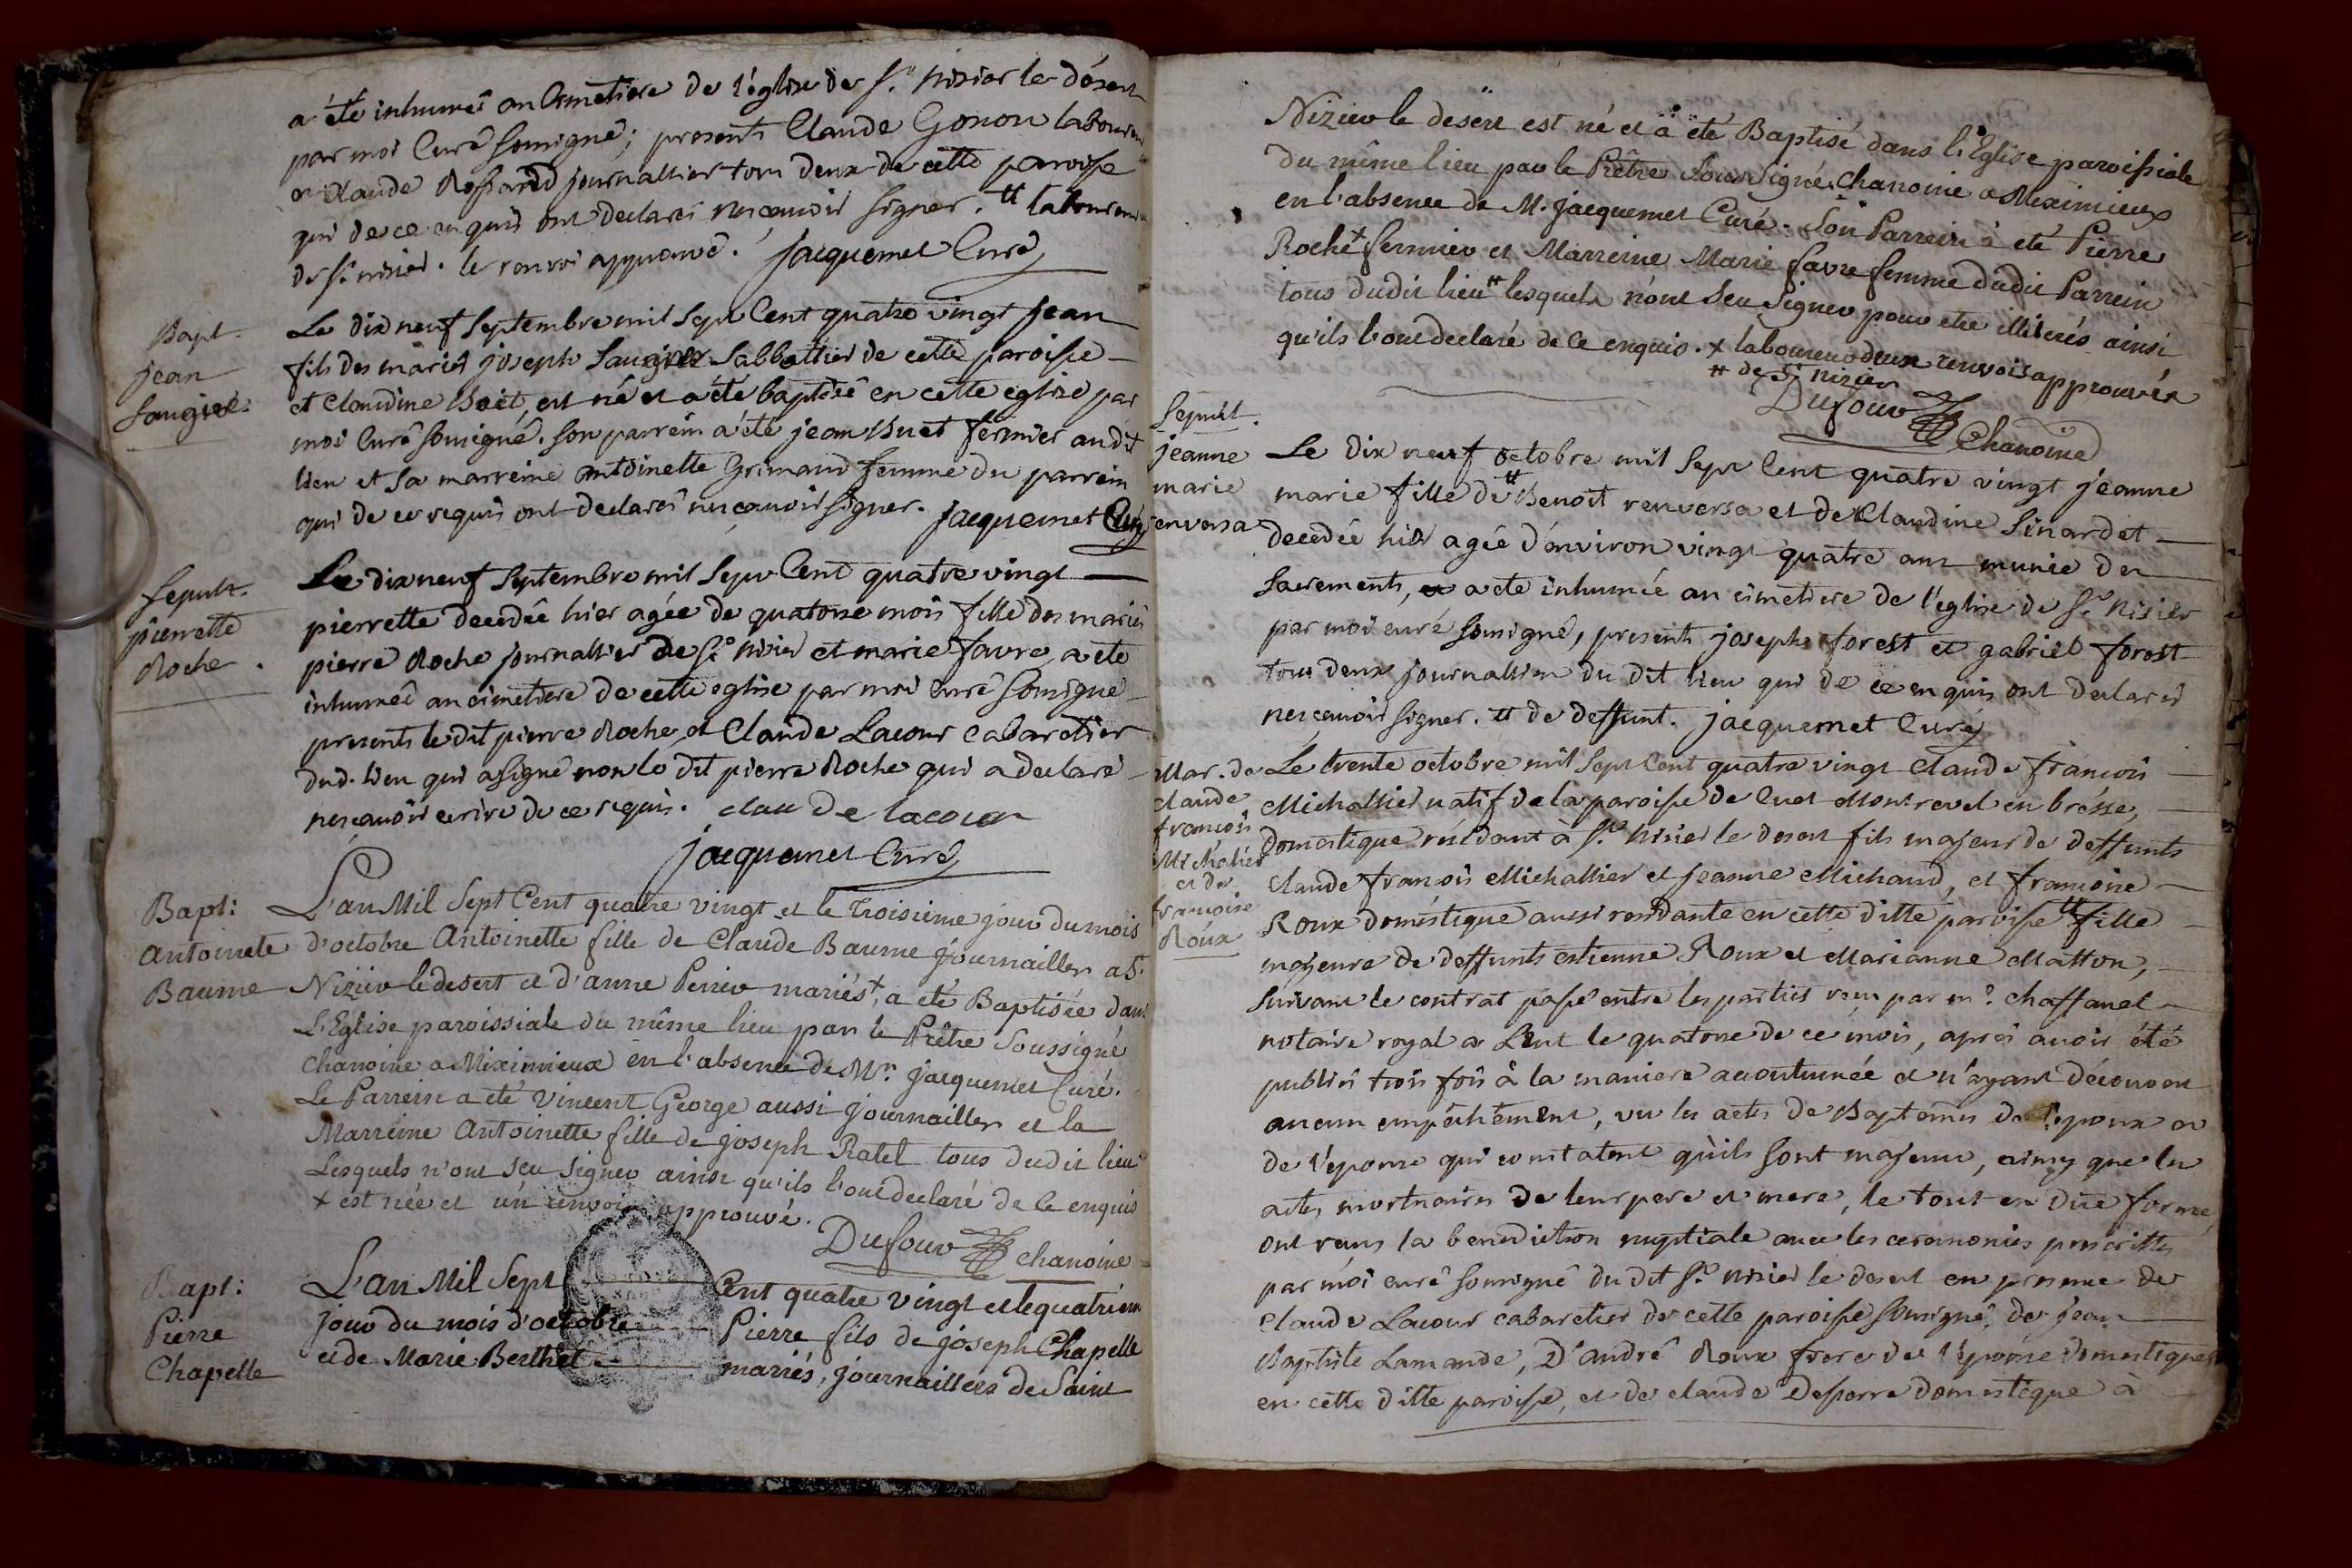 a été inhumé au Cimetiere de l'église de St. nisier le désert
par moi Curé soussigné; presents Claude Gonon laboureur
et Claude Rossand journallier tous deux de cette paroisse
qui de ce enquis ont declarés ne sçauoir signer. # laboureur
de st nisier. le renvoi approuvé. jacquemet Curé
Bapt.
jean
Saugier.
Le dix neuf septembre mil sept Cent quatre vingt jean
fils des mariés joseph Saugier Sabbottier de cette paroisse
et Claudine est né et a été baptisé en cette eglise par
moi Curé soussigné. son parrein a été jean Huet fermier audit
lieu et sa marreine antoinette Grimaud femme du parrein
qui de ce requis ont declarés ne sçauoir signer. jacquemet Curé
Sepult.
pierrette
Roche.
Le dix neuf septembre mil sept Cent quatre vingt
pierrette decedée hier agée de quatorze mois fille des mariés
pierre Roche journallier de St. nisier et marie favre a été
inhumée au cimetiere de cette eglise par moi curé soussigné
presents le dit pierre Roche, et Claude Lacour Cabaretier
dud. lieu qui a signé non le dit pierre Roche qui a declaré
ne sçauoir ecrire de ce requis. claude lacour
jacquemet Curé
Bapt:
Antoinete
Baume
L'an Mil Sept Cent quatre vingt et le troisieme jour du mois
d'octobre Antoinette fille de Claude Baume journaillier a St.
Nizier le desert et d'anne Perrier mariés +, a été Baptisée dans
L'Eglise paroissiale du même lieu par le Prêtre Soussigné
Chanoine a Miximieux en l'absence de Mr. jacquemet Curé.
Le Parrein a été Vincent George aussi journaillier et la
Marreine Antoinette fille de joseph Ratel tous dudit lieu
Lesquels n'ont seu signer ainsi qu'ils l'ont declaré de ce enquis
+ est née et un renvoi approuvé.
Dufour chanoine
Bapt:
Pierre
Chapelle
L'an Mil Sept Cent quatre vingt et le quatrieme
jour du mois d'octobre Pierre fils de joseph Chapelle
et de Marie Berthet mariés, journailliers de Saint
Nizier le desert est né et a été Baptisé dans l'Eglise paroissiale
du même lieu par le Prêtre Soussigné Chanoine a Meximieux
en l'absence de M. jacquemet Curé. Son Parrein a été Pierre
Roche + fermier et Marreine Marie favre femme dudit Parrein
tous dudit lieu # lesquels n'ont seu signer pour etre illiterés ainsi
qu'ils l'ont declaré de ce enquis. + laboureur deux renvois approuvés
# de St nizier
Dufour Chanoine
Sepult.
jeanne
marie
renversa
Le dix neuf octobre mil sept Cent quatre vingt jeanne
marie fille de # Benoit renversa et de Claudine Sinardet
decedée hier agée d'environ vingt quatre ans munie des
sacrements, a été inhumée au cimetiere de l'eglise de St. nisier
par moi curé soussigné, presents joseph forest et gabriel forest
tous deux journalliers du dit lieu qui de ce enquis ont declarés
ne sçauoir signer. # de deffunt. jacquemet Curé
Mar. de
claude
françois
Michalier
et de
françoise
Roux
Le trente octobre mil sept Cent quatre vingt claude françois
Michallier natif de la paroisse de Cuet Montrevel en brésse,
Domestique résidant à St. nisier le desert fils majeur de deffunts
claude françois Michallier et jeanne Michaud, et françoise
Roux domestique aussi residante en cette ditte paroisse # fille
majeure de deffunts estienne Roux et Marianne Matton,
suivant le contrat passé entre les parties reçu par me. Chaffanel
notaire royal a Lent le quatorze de ce mois, après auoir été
publiés trois fois à la maniere accoutumée et n'ayant décovuert
aucun empéchement, vu les actes de Baptemes de l'epoux et
de l'epouse qui constatent qu'ils sont majeurs, ainsy que les
actes mortuaires de leur pere et mere, le tout en due forme
ont reçus la benediction nuptiale avec les ceremonies prescrittes
par moi curé soussigné du dit St. nisier le desert en presence de
Claude Lacour cabaretier de cette paroisse soussigné, de jean
Baptiste Lamande, D'andré Roux frere de l'epouse domestiques
en cette ditte paroisse, et de claude Deperre domestique à